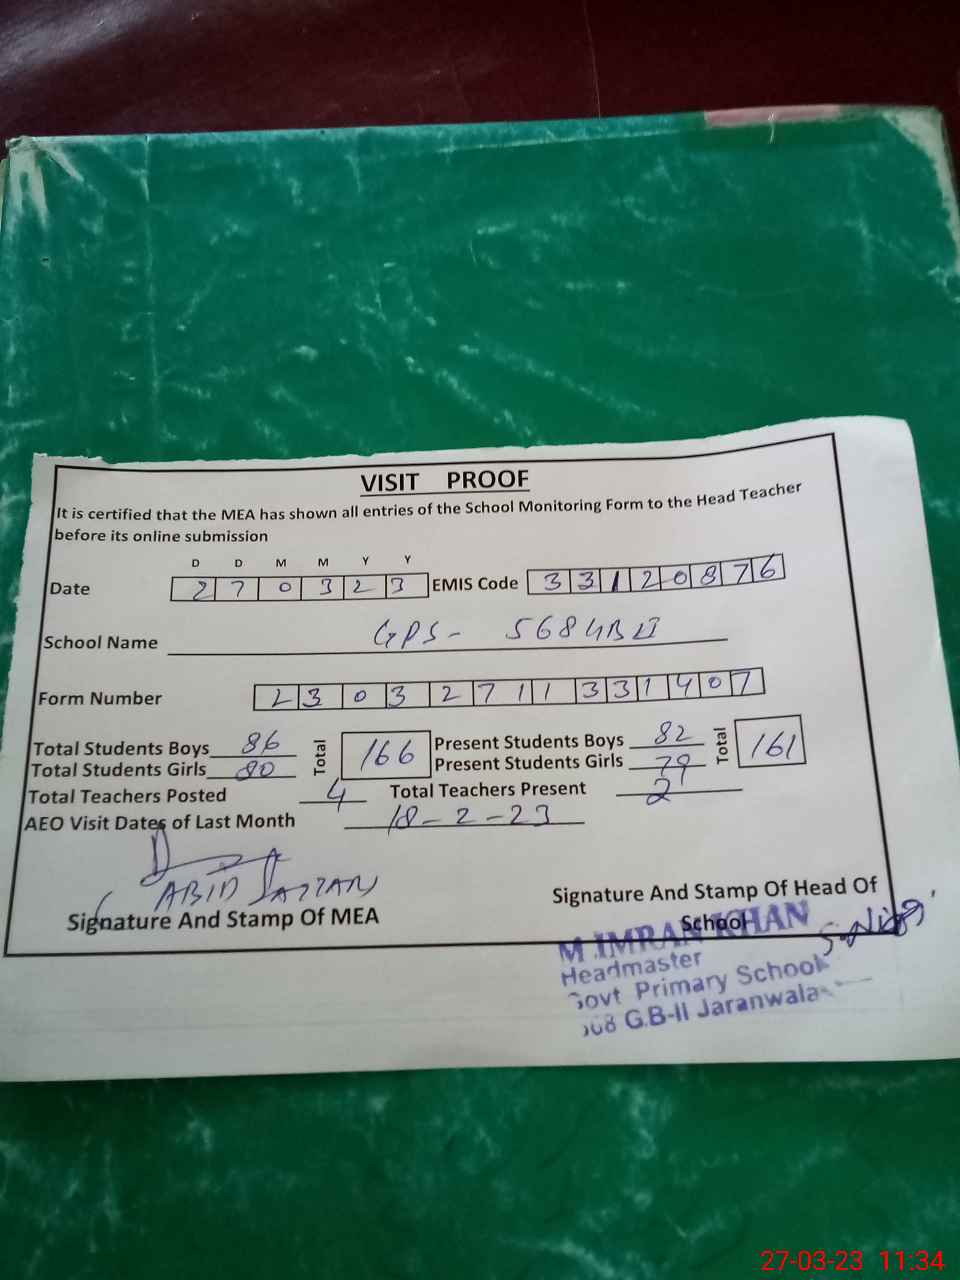 VISIT PROOF
It is certified that the MEA has shown all entries of the School Monitoring Form to the Head Teacher
before its online submission
D D M M Y Y
Date 2 7 0 3 2 3 EMIS Code 3 3 1 2 0 8 7 6
School Name GPS- 568 GB II
Form Number 2 3 0 3 2 7 1 1 3 3 1 4 0 7
Total Students Boys 86 Total 166 Present Students Boys 82 Total 161
Total Students Girls 80 Present Students Girls 79
Total Teachers Posted 4 Total Teachers Present 2
AEO Visit Dates of Last Month 18-2-23
ABID
Signature And Stamp Of MEA
Signature And Stamp Of Head Of
School
M.IMRAN KHAN
Headmaster
Govt Primary School
568 G.B-II Jaranwala
27-03-23 11:34